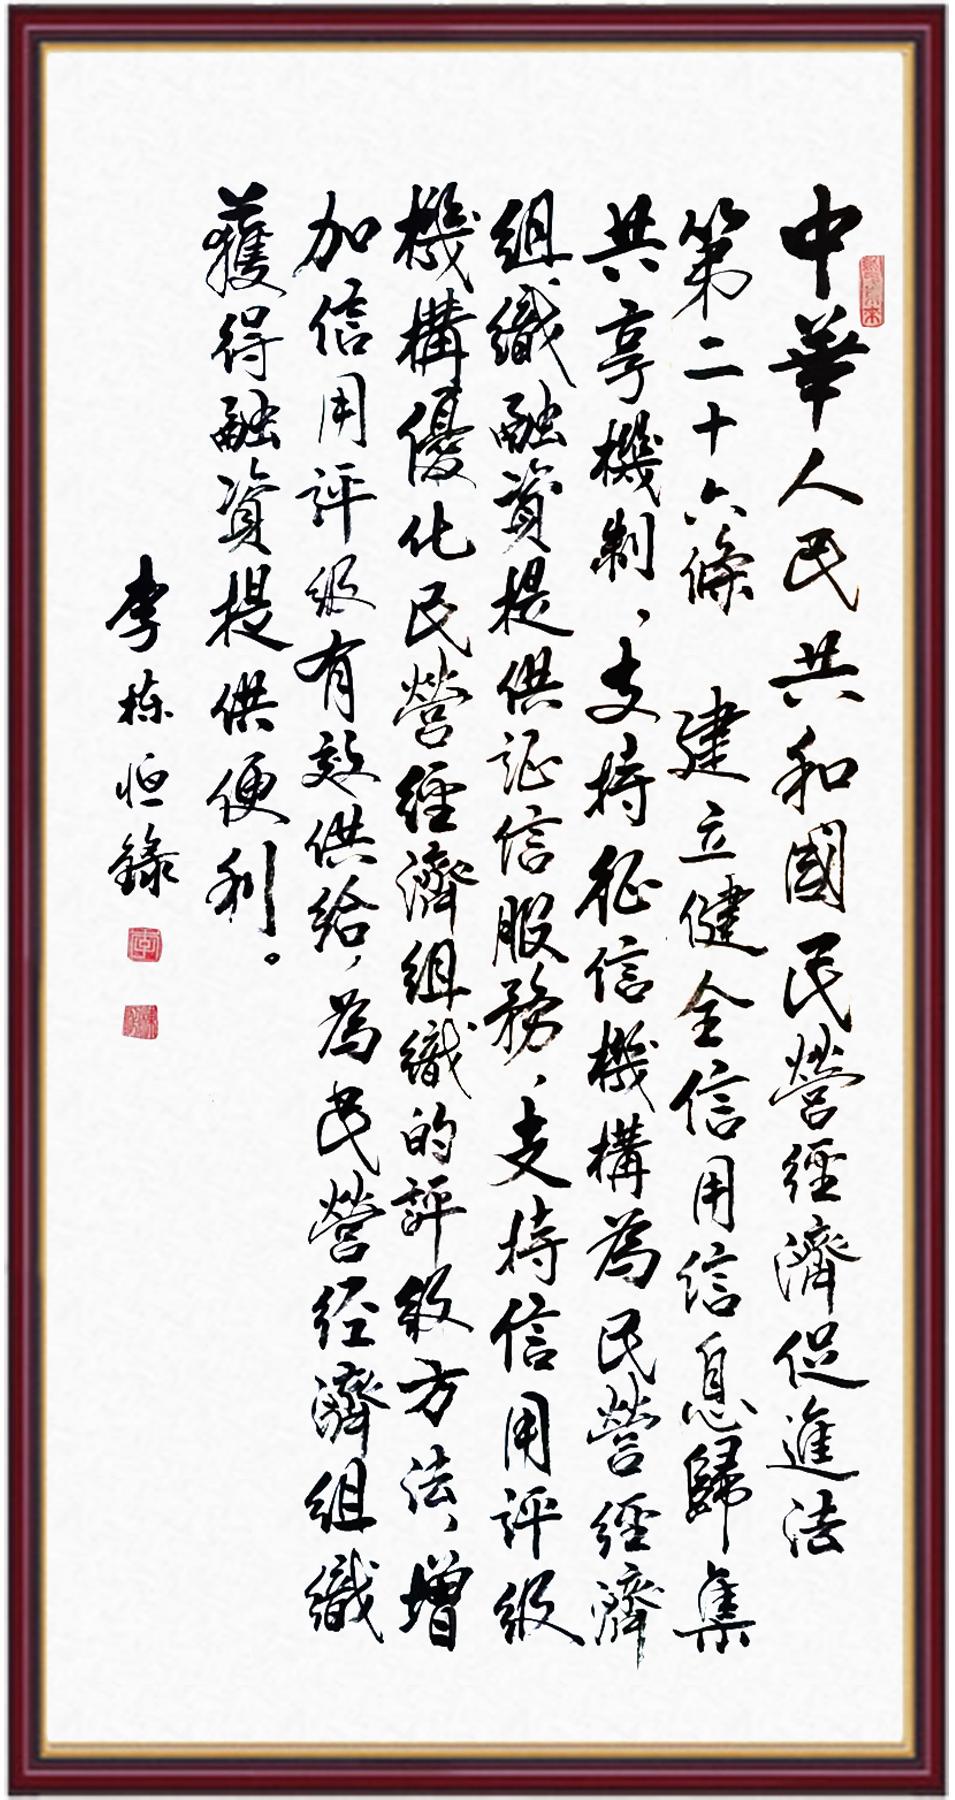 中華人民共和國民營經濟促進法
第二十六條　建立健全信用信息歸集
共享機制，支持征信機構為民營經濟
組織融資提供征信服務，支持信用評級
機構優化民營經濟組織的評級方法，增
加信用評級有效供給，為民營经濟組織
獲得融資提供便利。
李棟恒錄